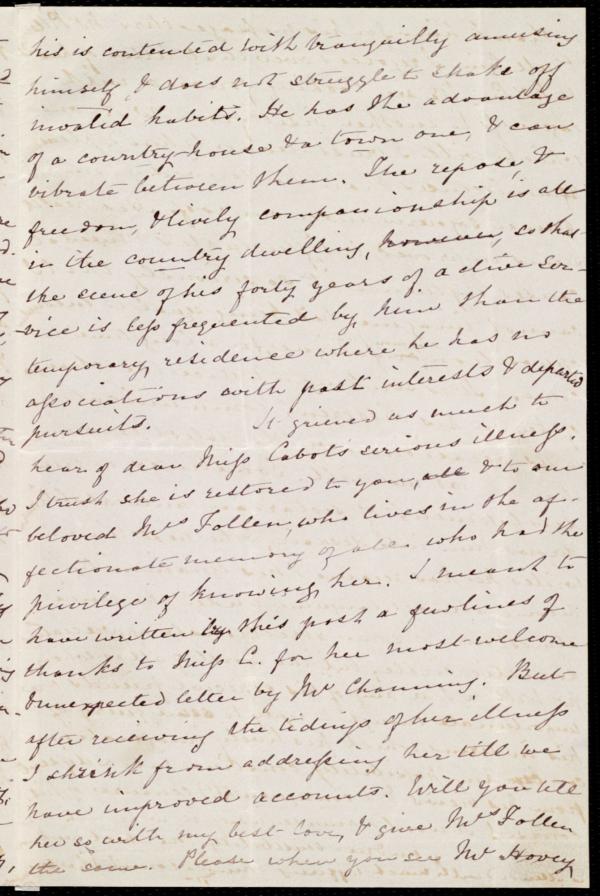 his is contented with tranquilly amusing
himself & does not struggle to shake off
invalid habits. He has the advantage
of a country-house & a town one, & can
vibrate between them. The repose, &
freedom, & lively companionship is all
in the country dwelling, however, so that
the scene of his forty years of active ser-
vice is less frequented by him than the
temporary residence where he has no
associations with past interests & departed
pursuits. It grieved us much to
hear of dear Miss Cabot's serious illness.
I trust she is restored to you, all & to our
beloved Mrs Follen, who lives in the af-
fectionate memory of all who had the
privilege of knowing her. I meant to
have written by this post a few lines of
thanks to Miss C. for her most welcome
& unexpected letter by Mr Channing. But
after receiving the tidings of her illness
I shrink from addressing her till we
have improved accounts. Will you tell
her so with my best love, & give Mrs Follen
the same. Please when you see Mr Hovey,